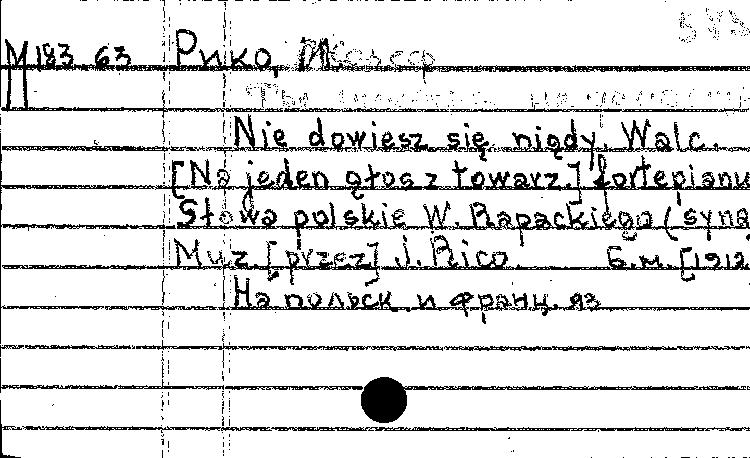 М 183 63 Рико, Жозеф
Nie dowiesz się nigdy. Walc.
[Na jeden głos z towarz.] fortepianu
Słowa polskie W. Rapackiego (syna
Muz. [przez] J. Rico. Б.м. [1912
На польск. и франц. яз.